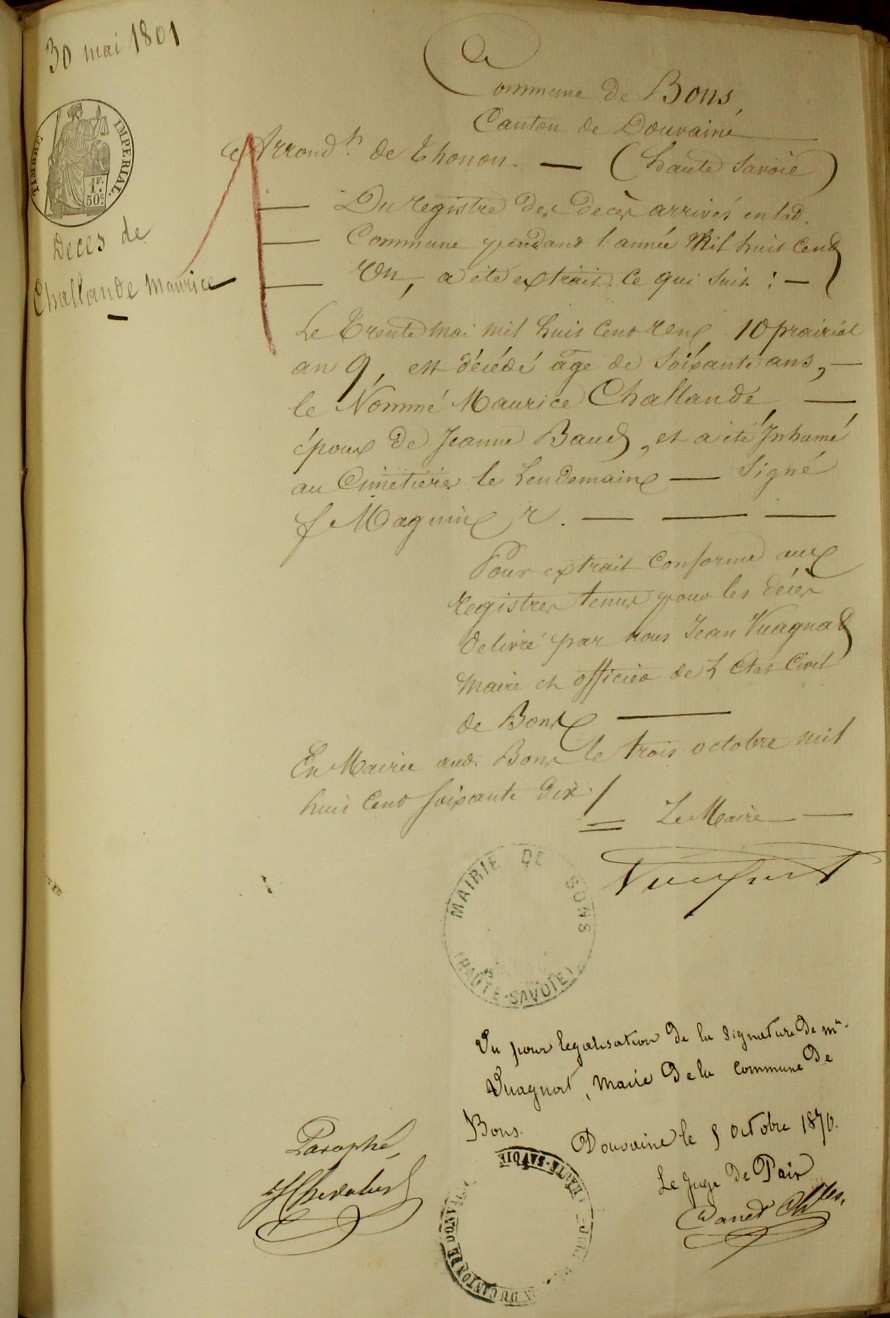 30 mai 1801
TIMBRE IMPERIAL
1F. 50c
Décès de
Challande Maurice
Commune de Bons,
Canton de Douvaine
Arrond.t de Thonon. — (haute Savoie)
— Du registre des décès arrivés en lad.
— Commune pendant l'année Mil huit Cent
— Un, a été extrait ce qui suit : —
Le Trente mai mil huit Cent 10 prairial
an 9, est décédé âge de Soixante ans, —
le Nommé Maurice Challande, —
époux de Jeanne Baud, et a été Inhumé
au Cimetière le Lendemain — Signé
f Magnin r. — — —
Pour extrait Conforme aux
registres tenus pour les décès
delivré par nous Jean Vuagnat
Maire et officier de L'Etat Civil
de Bons —
En Mairie aud. Bons le trois octobre mil
huit Cent soixante dix /
Le Maire —
MAIRIE DE BONS
(HAUTE-SAVOIE)
Vu pour légalisation de la signature de mr.
Vuagnat, Maire de la commune de
Bons.
Douvaine le 5 octobre 1870.
Le juge de Paix
Paraphé,
HAUTE-SAVOIE
DU CANTON DE DOUVAINE